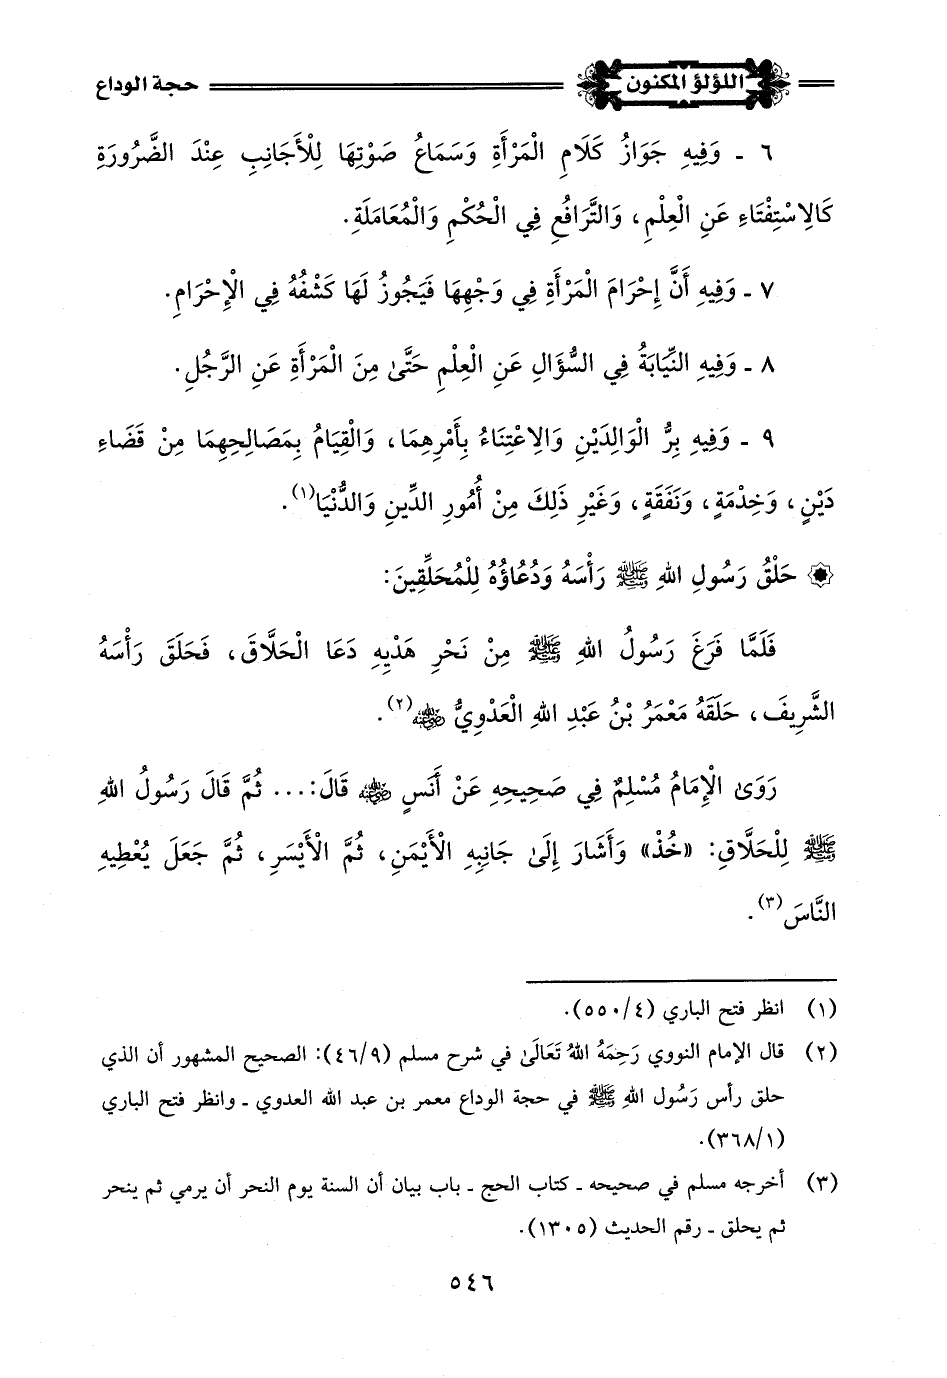 اللؤلؤ المكنون
حجة الوداع
٦ ـ وَفِيهِ جَوَازُ كَلَامِ الْمَرْأَةِ وَسَمَاعُ صَوْتِهَا لِلْأَجَانِبِ عِنْدَ الضَّرُورَةِ
كَالِاسْتِفْتَاءِ عَنِ الْعِلْمِ، وَالتَّرَافُعِ فِي الْحُكْمِ وَالْمُعَامَلَةِ.
٧ ـ وَفِيهِ أَنَّ إِحْرَامَ الْمَرْأَةِ فِي وَجْهِهَا فَيَجُوزُ لَهَا كَشْفُهُ فِي الْإِحْرَامِ.
٨ ـ وَفِيهِ النِّيَابَةُ فِي السُّؤَالِ عَنِ الْعِلْمِ حَتَّىٰ مِنَ الْمَرْأَةِ عَنِ الرَّجُلِ.
٩ ـ وَفِيهِ بِرُّ الْوَالِدَيْنِ وَالِاعْتِنَاءُ بِأَمْرِهِمَا، وَالْقِيَامُ بِمَصَالِحِهِمَا مِنْ قَضَاءِ
دَيْنٍ، وَخِدْمَةٍ، وَنَفَقَةٍ، وَغَيْرِ ذَلِكَ مِنْ أُمُورِ الدِّينِ وَالدُّنْيَا(١).
۞ حَلْقُ رَسُولِ اللهِ ﷺ رَأْسَهُ وَدُعَاؤُهُ لِلْمُحَلِّقِينَ:
فَلَمَّا فَرَغَ رَسُولُ اللهِ ﷺ مِنْ نَحْرِ هَدْيِهِ دَعَا الْحَلَّاقَ، فَحَلَقَ رَأْسَهُ
الشَّرِيفَ، حَلَقَهُ مَعْمَرُ بْنُ عَبْدِ اللهِ الْعَدْوِيُّ رضي الله عنه(٢).
رَوَىٰ الْإِمَامُ مُسْلِمٌ فِي صَحِيحِهِ عَنْ أَنَسٍ رضي الله عنه قَالَ:... ثُمَّ قَالَ رَسُولُ اللهِ
ﷺ لِلْحَلَّاقِ: «خُذْ» وَأَشَارَ إِلَىٰ جَانِبِهِ الْأَيْمَنِ، ثُمَّ الْأَيْسَرِ، ثُمَّ جَعَلَ يُعْطِيهِ
النَّاسَ(٣).
(١) انظر فتح الباري (٥٥٠/٤).
(٢) قال الإمام النووي رَحِمَهُ اللهُ تَعَالَىٰ في شرح مسلم (٤٦/٩): الصحيح المشهور أن الذي
حلق رأس رَسُول اللهِ ﷺ في حجة الوداع معمر بن عبد الله العدوي ـ وانظر فتح الباري
(٣٦٨/١).
(٣) أخرجه مسلم في صحيحه ـ كتاب الحج ـ باب بيان أن السنة يوم النحر أن يرمي ثم ينحر
ثم يحلق ـ رقم الحديث (١٣٠٥).
٥٤٦